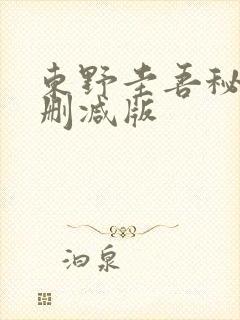 东野圭吾秘
删减版
泊泉